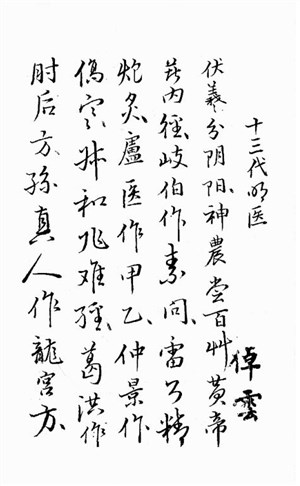 十三代明医
倬雲
伏羲分阴阳、神農尝百艸、黄帝
内经、岐伯作素问、雷公精
炮炙、盧医作甲乙、仲景作
傷寒、叔和难经、葛洪作
肘后方、孫真人作龍宫方、